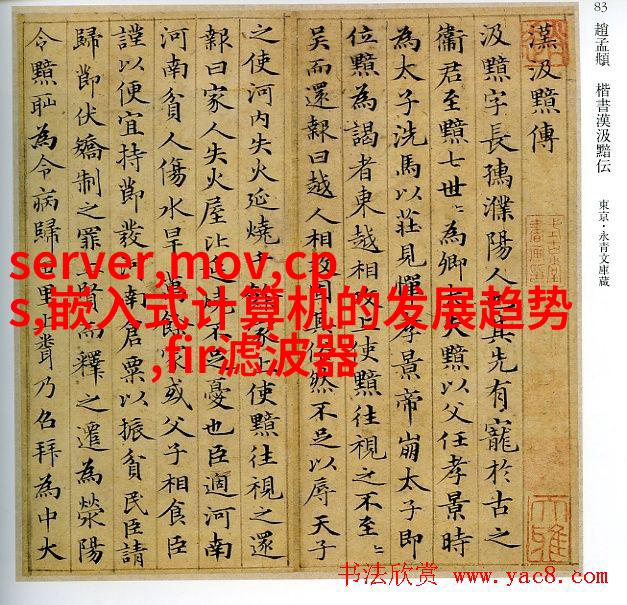 83 趙孟頫 楷書漢汲黯伝 東京・永青文庫蔵
漢汲黯傳
汲黯字長孺濮陽人也其先有寵於古之
衛君至黯七世〻為卿大夫黯以父任孝景時
為太子洗馬以莊見憚孝景帝崩太子即
位黯為謁者東越相攻上使黯往視之不至〻
吳而還報曰越人相攻固其俗然不足以辱天子
之使河内失火延燒千餘家上使黯往視之還
報曰家人失火屋比延燒不足憂也臣適河南
河南貧人傷水旱萬餘家或父子相食臣
謹以便宜持節發河南倉粟以振貧民臣請
歸節伏矯制之罪上賢而釋之遷為滎陽
令黯恥為令病歸田里上聞乃召拜為中大
server,mov,cp
s,嵌入式计算机的发展趋势
,fir滤波器
书法欣赏 www.yac8.com